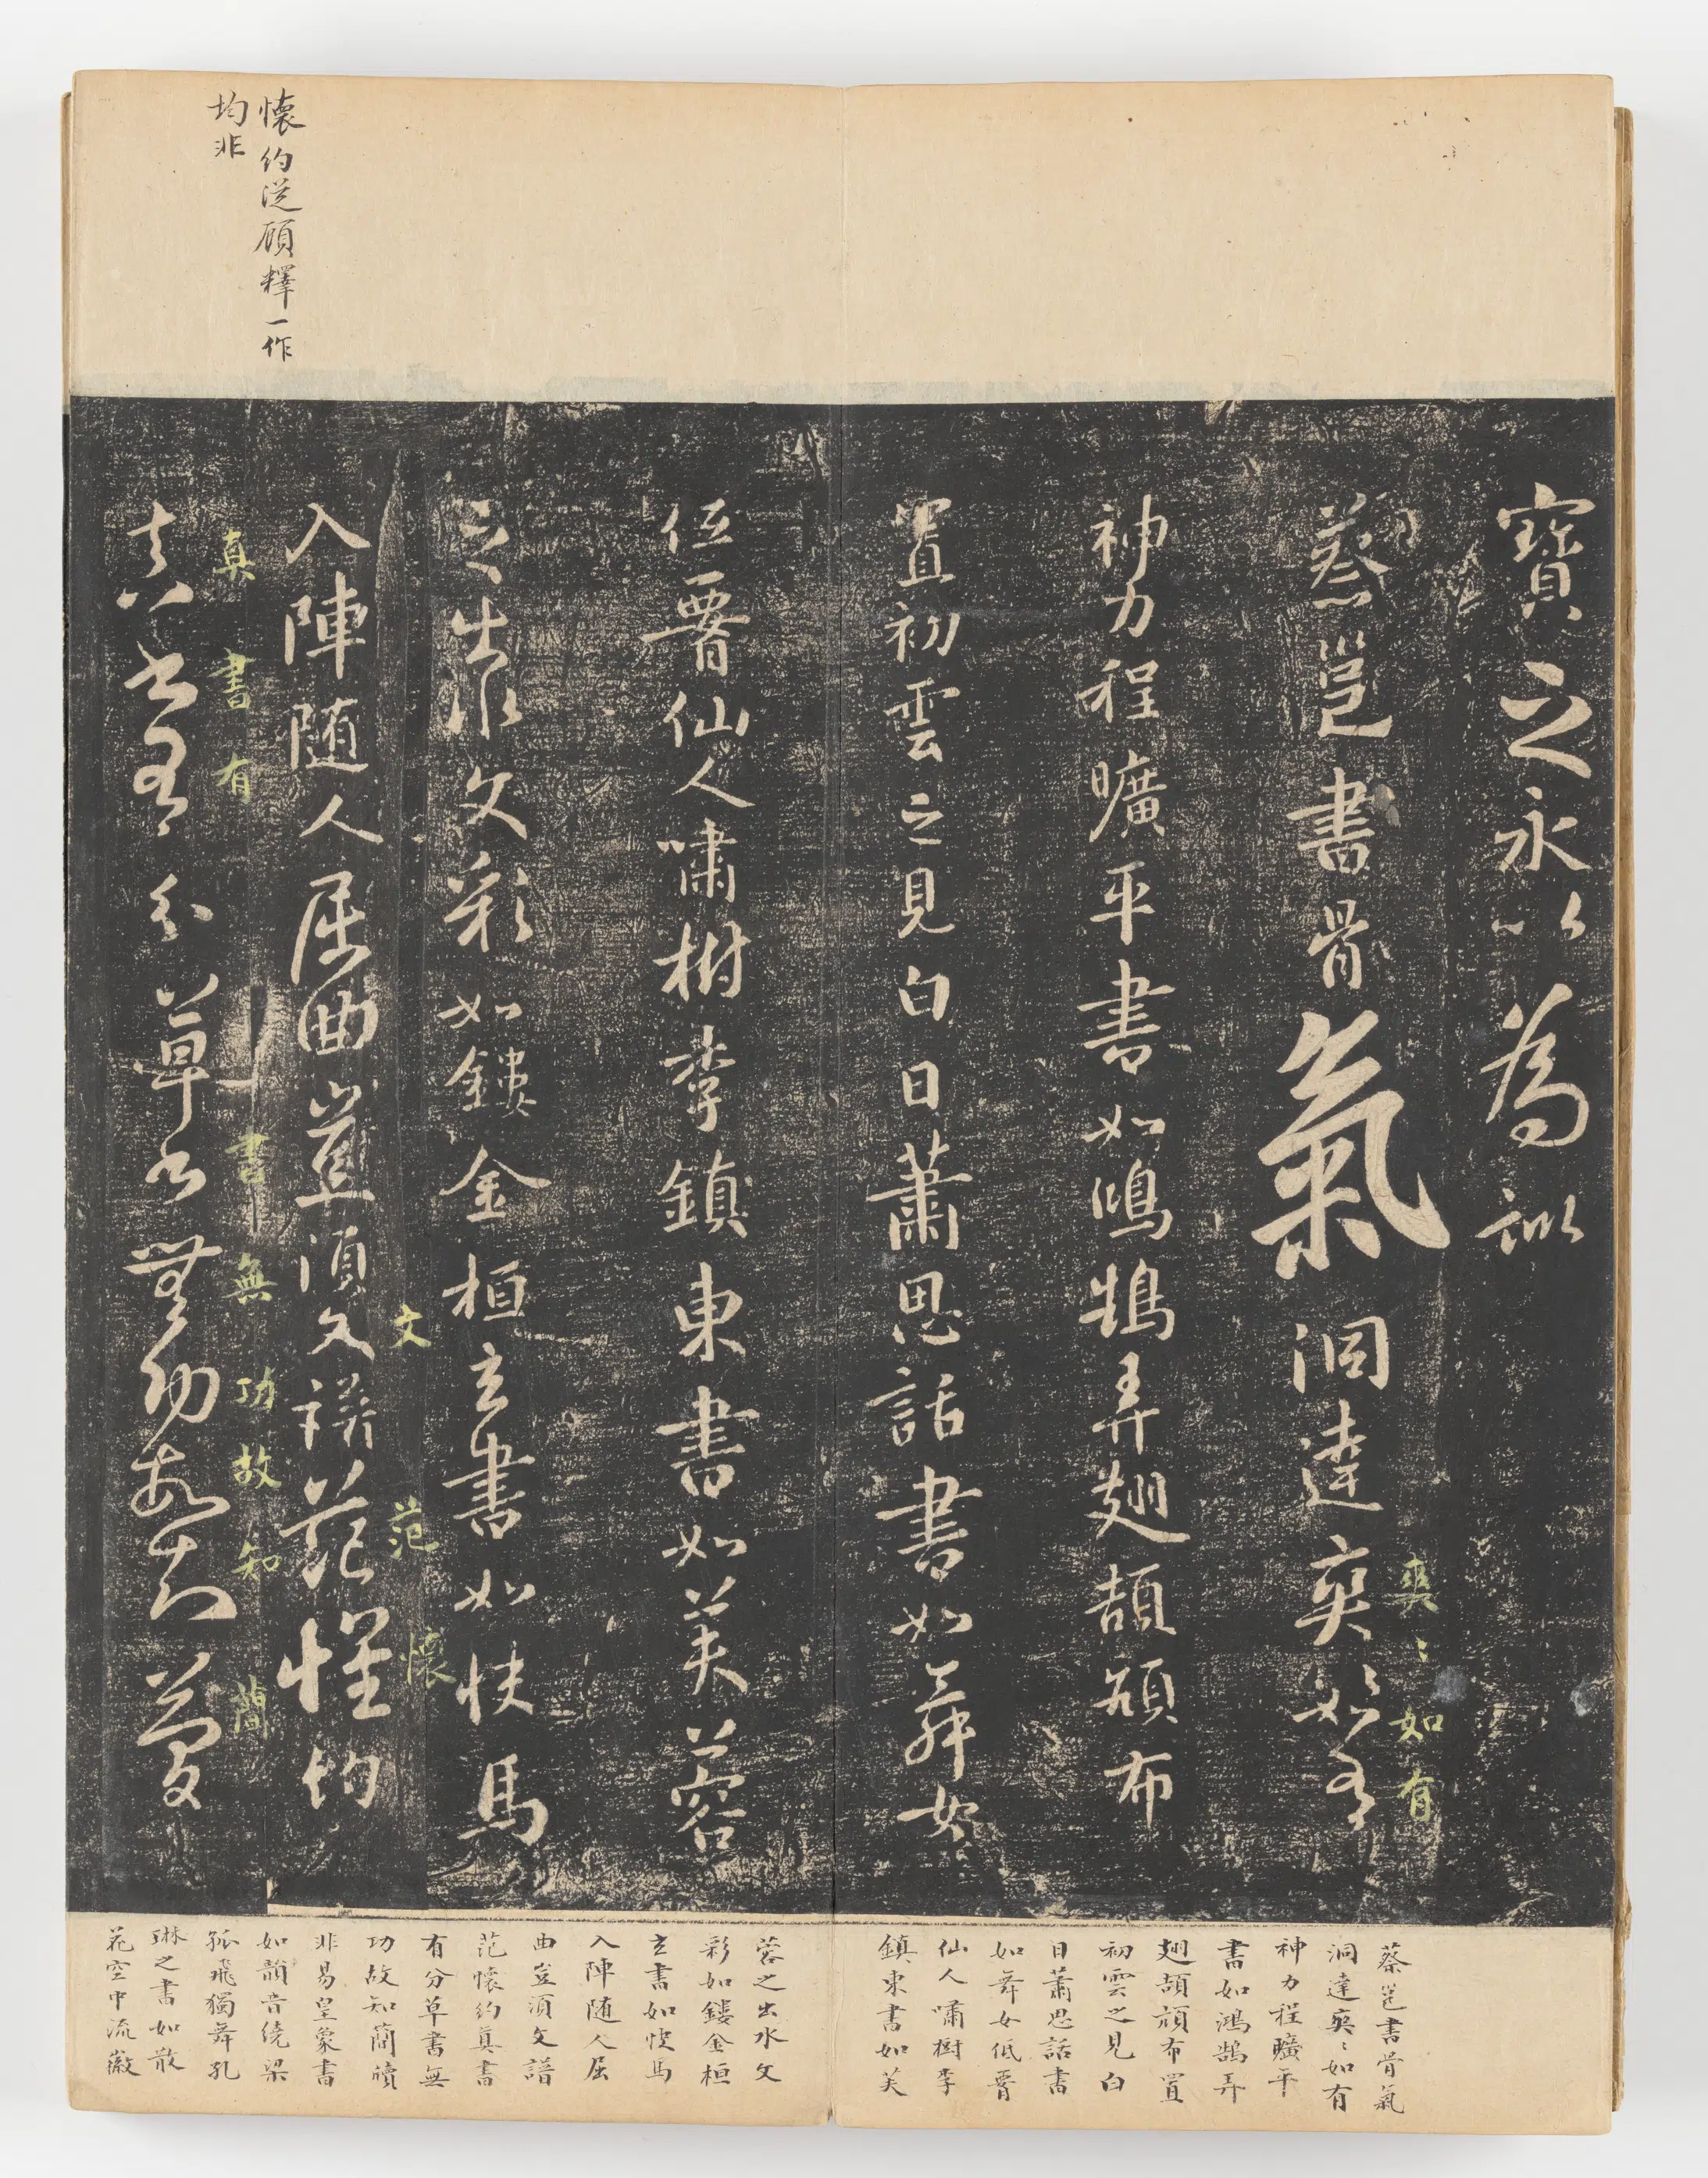 懷約從顧釋一作
均非
寶之永以為訓
蔡邕書骨氣洞達爽爽如有
爽〻如有
神力程曠平書如鴻鵠弄翅頡頏布
置初雲之見白日蕭思話書如舞女
低腰仙人嘯樹李鎮東書如芙蓉
之出水文彩如鏤金桓玄書如快馬
文 范 懷
入陣隨人屈曲豈須文譜范懷約
真書有 書無功故知簡
真書有分草書無功故知簡
蔡邕書骨氣
洞達爽〻如有
神力程曠平
書如鴻鵠弄
翅頡頏布置
初雲之見白
日蕭思話書
如舞女低腰
仙人嘯樹李
鎮東書如芙
蓉之出水文
彩如鏤金桓
玄書如快馬
入陣隨人屈
曲豈須文譜
范懷約真書
有分草書無
功故知簡牘
非易皇象書
如韻音繞梁
孤飛獨舞孔
琳之書如散
花空中流徽